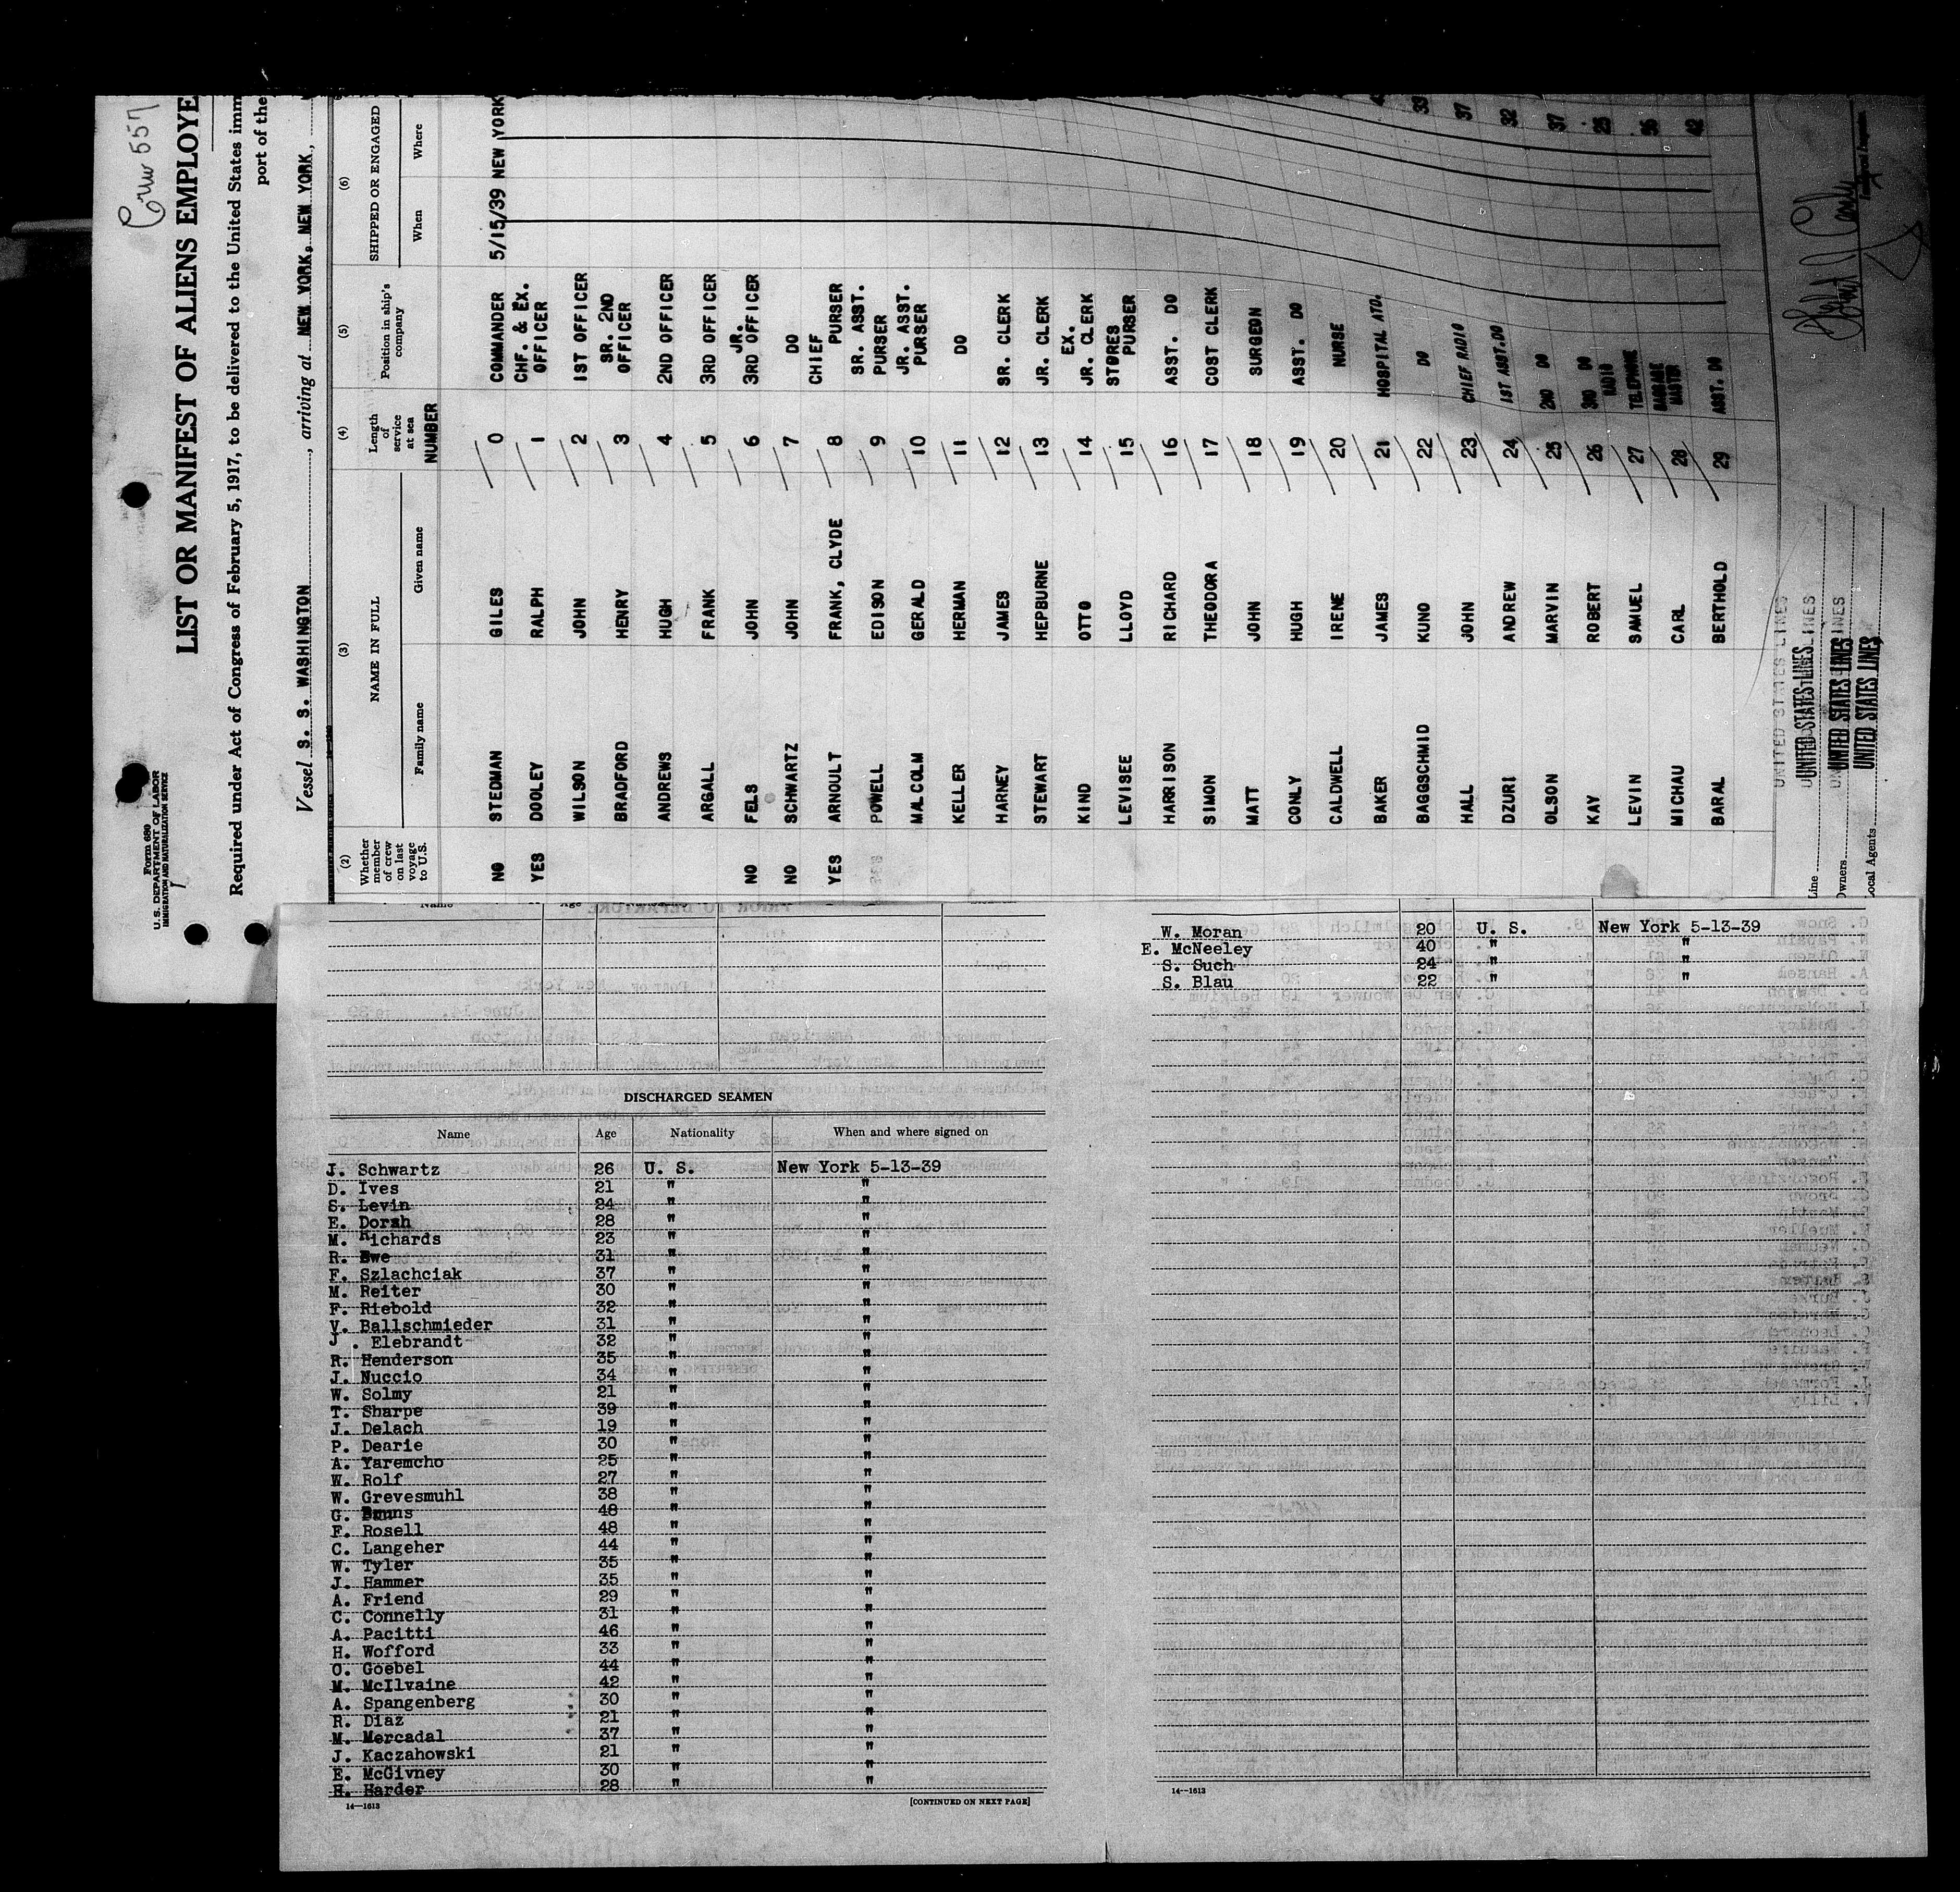 Crew 557
LIST OR MANIFEST OF ALIENS EMPLOYE
Required under Act of Congress of February 5, 1917, to be delivered to the United States imm
port of the
Vessel S. S. WASHINGTON, arriving at NEW YORK, NEW YORK,
Form 680
U.S. DEPARTMENT OF LABOR
IMMIGRATION AND NATURALIZATION SERVICE
(2) (3) (4) (5) (6)
Whether member of crew on last voyage to U.S. NAME IN FULL Length of service at sea Position in ship's company SHIPPED OR ENGAGED
Family name Given name NUMBER When Where
NO STEDMAN GILES 0 COMMANDER 5/15/39 NEW YORK
YES DOOLEY RALPH 1 CHF. & EX. OFFICER
WILSON JOHN 2 1ST OFFICER
BRADFORD HENRY 3 SR. 2ND OFFICER
ANDREWS HUGH 4 2ND OFFICER
ARGALL FRANK 5 3RD OFFICER
NO FELS JOHN 6 JR. 3RD OFFICER
NO SCHWARTZ JOHN 7 DO
YES ARNOULT FRANK, CLYDE 8 CHIEF PURSER
POWELL EDISON 9 SR. ASST. PURSER
MALCOLM GERALD 10 JR. ASST. PURSER
KELLER HERMAN 11 DO
HARNEY JAMES 12 SR. CLERK
STEWART HEPBURNE 13 JR. CLERK
KIND OTTO 14 EX. JR. CLERK
LEVISEE LLOYD 15 STORES PURSER
HARRISON RICHARD 16 ASST. DO
SIMON THEODORA 17 COST CLERK
MATT JOHN 18 SURGEON
CONLY HUGH 19 ASST. DO
CALDWELL IRENE 20 NURSE
BAKER JAMES 21 HOSPITAL ATD.
BAGGSCHMID KUNO 22 DO 33
HALL JOHN 23 CHIEF RADIO 37
DZURI ANDREW 24 1ST ASST. DO 32
OLSON MARVIN 25 2ND DO 37
KAY ROBERT 26 3RD DO 25
LEVIN SAMUEL 27 RADIO TELEPHONE 36
MICHAU CARL 28 BAGGAGE MASTER 42
BARAL BERTHOLD 29 ASST. DO
Line UNITED STATES LINES
Owners UNITED STATES LINES
Local Agents UNITED STATES LINES
DISCHARGED SEAMEN
Name Age Nationality When and where signed on
J. Schwartz 26 U. S. New York 5-13-39
D. Ives 21 " "
S. Levin 24 " "
E. Dorah 28 " "
M. Richards 23 " "
R. Ewe 31 " "
F. Szlachciak 37 " "
M. Reiter 30 " "
F. Riebold 32 " "
V. Ballschmieder 31 " "
J. Elebrandt 32 " "
R. Henderson 35 " "
J. Nuccio 34 " "
W. Solmy 21 " "
T. Sharpe 39 " "
J. Delach 19 " "
P. Dearie 30 " "
A. Yaremcho 25 " "
W. Rolf 27 " "
W. Grevesmuhl 38 " "
G. 48 " "
F. Rosell 48 " "
C. Langeher 44 " "
W. Tyler 35 " "
J. Hammer 35 " "
A. Friend 29 " "
C. Connelly 31 " "
A. Pacitti 46 " "
H. Wofford 33 " "
O. Goebel 44 " "
M. McIlvaine 42 " "
A. Spangenberg 30 " "
R. Diaz 21 " "
M. Mercadal 37 " "
J. Kaczahowski 21 " "
E. McGivney 30 " "
H. Harder 28 " "
14—1613 [CONTINUED ON NEXT PAGE]
W. Moran 20 U. S. New York 5-13-39
E. McNeeley 40 " "
S. Such 24 " "
S. Blau 22 " "
14—1613